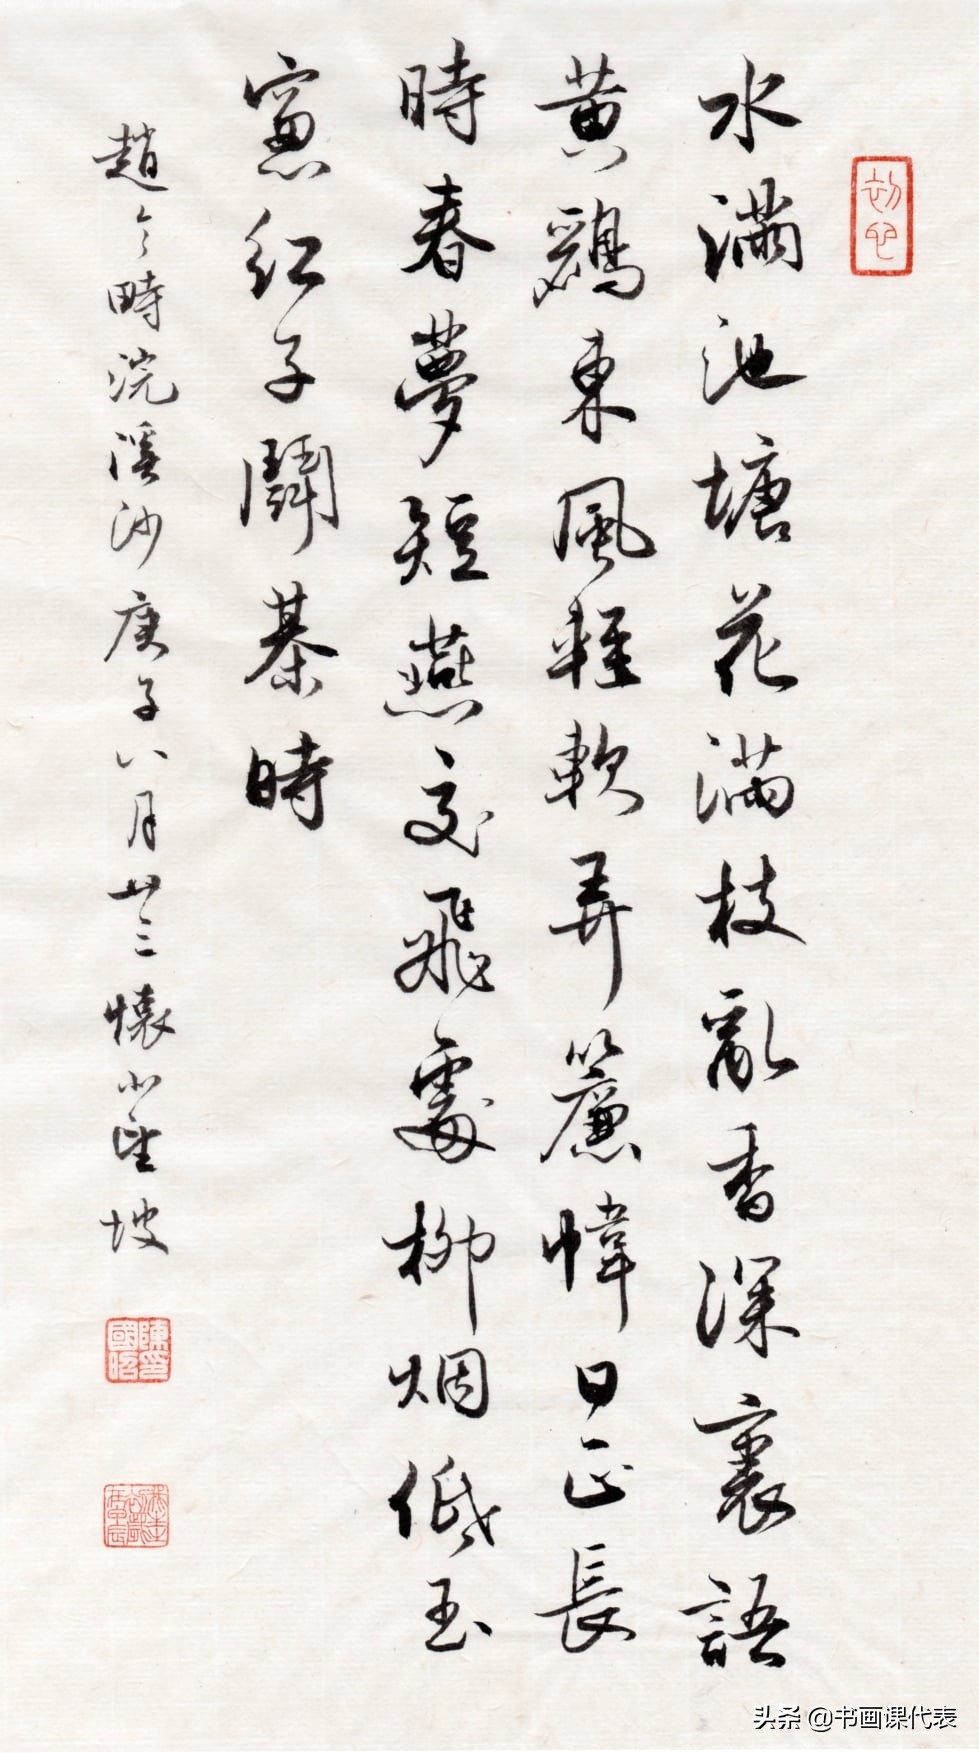 初心
水滿池塘花滿枝亂香深裏語
黄鸝東風輕軟弄簾幃日正長
時春夢短燕交飛處柳烟低玉
窻紅子鬭棊時
趙令畤浣溪沙庚子八月廿三懷小望坡
陳印國昭
头条 @书画课代表